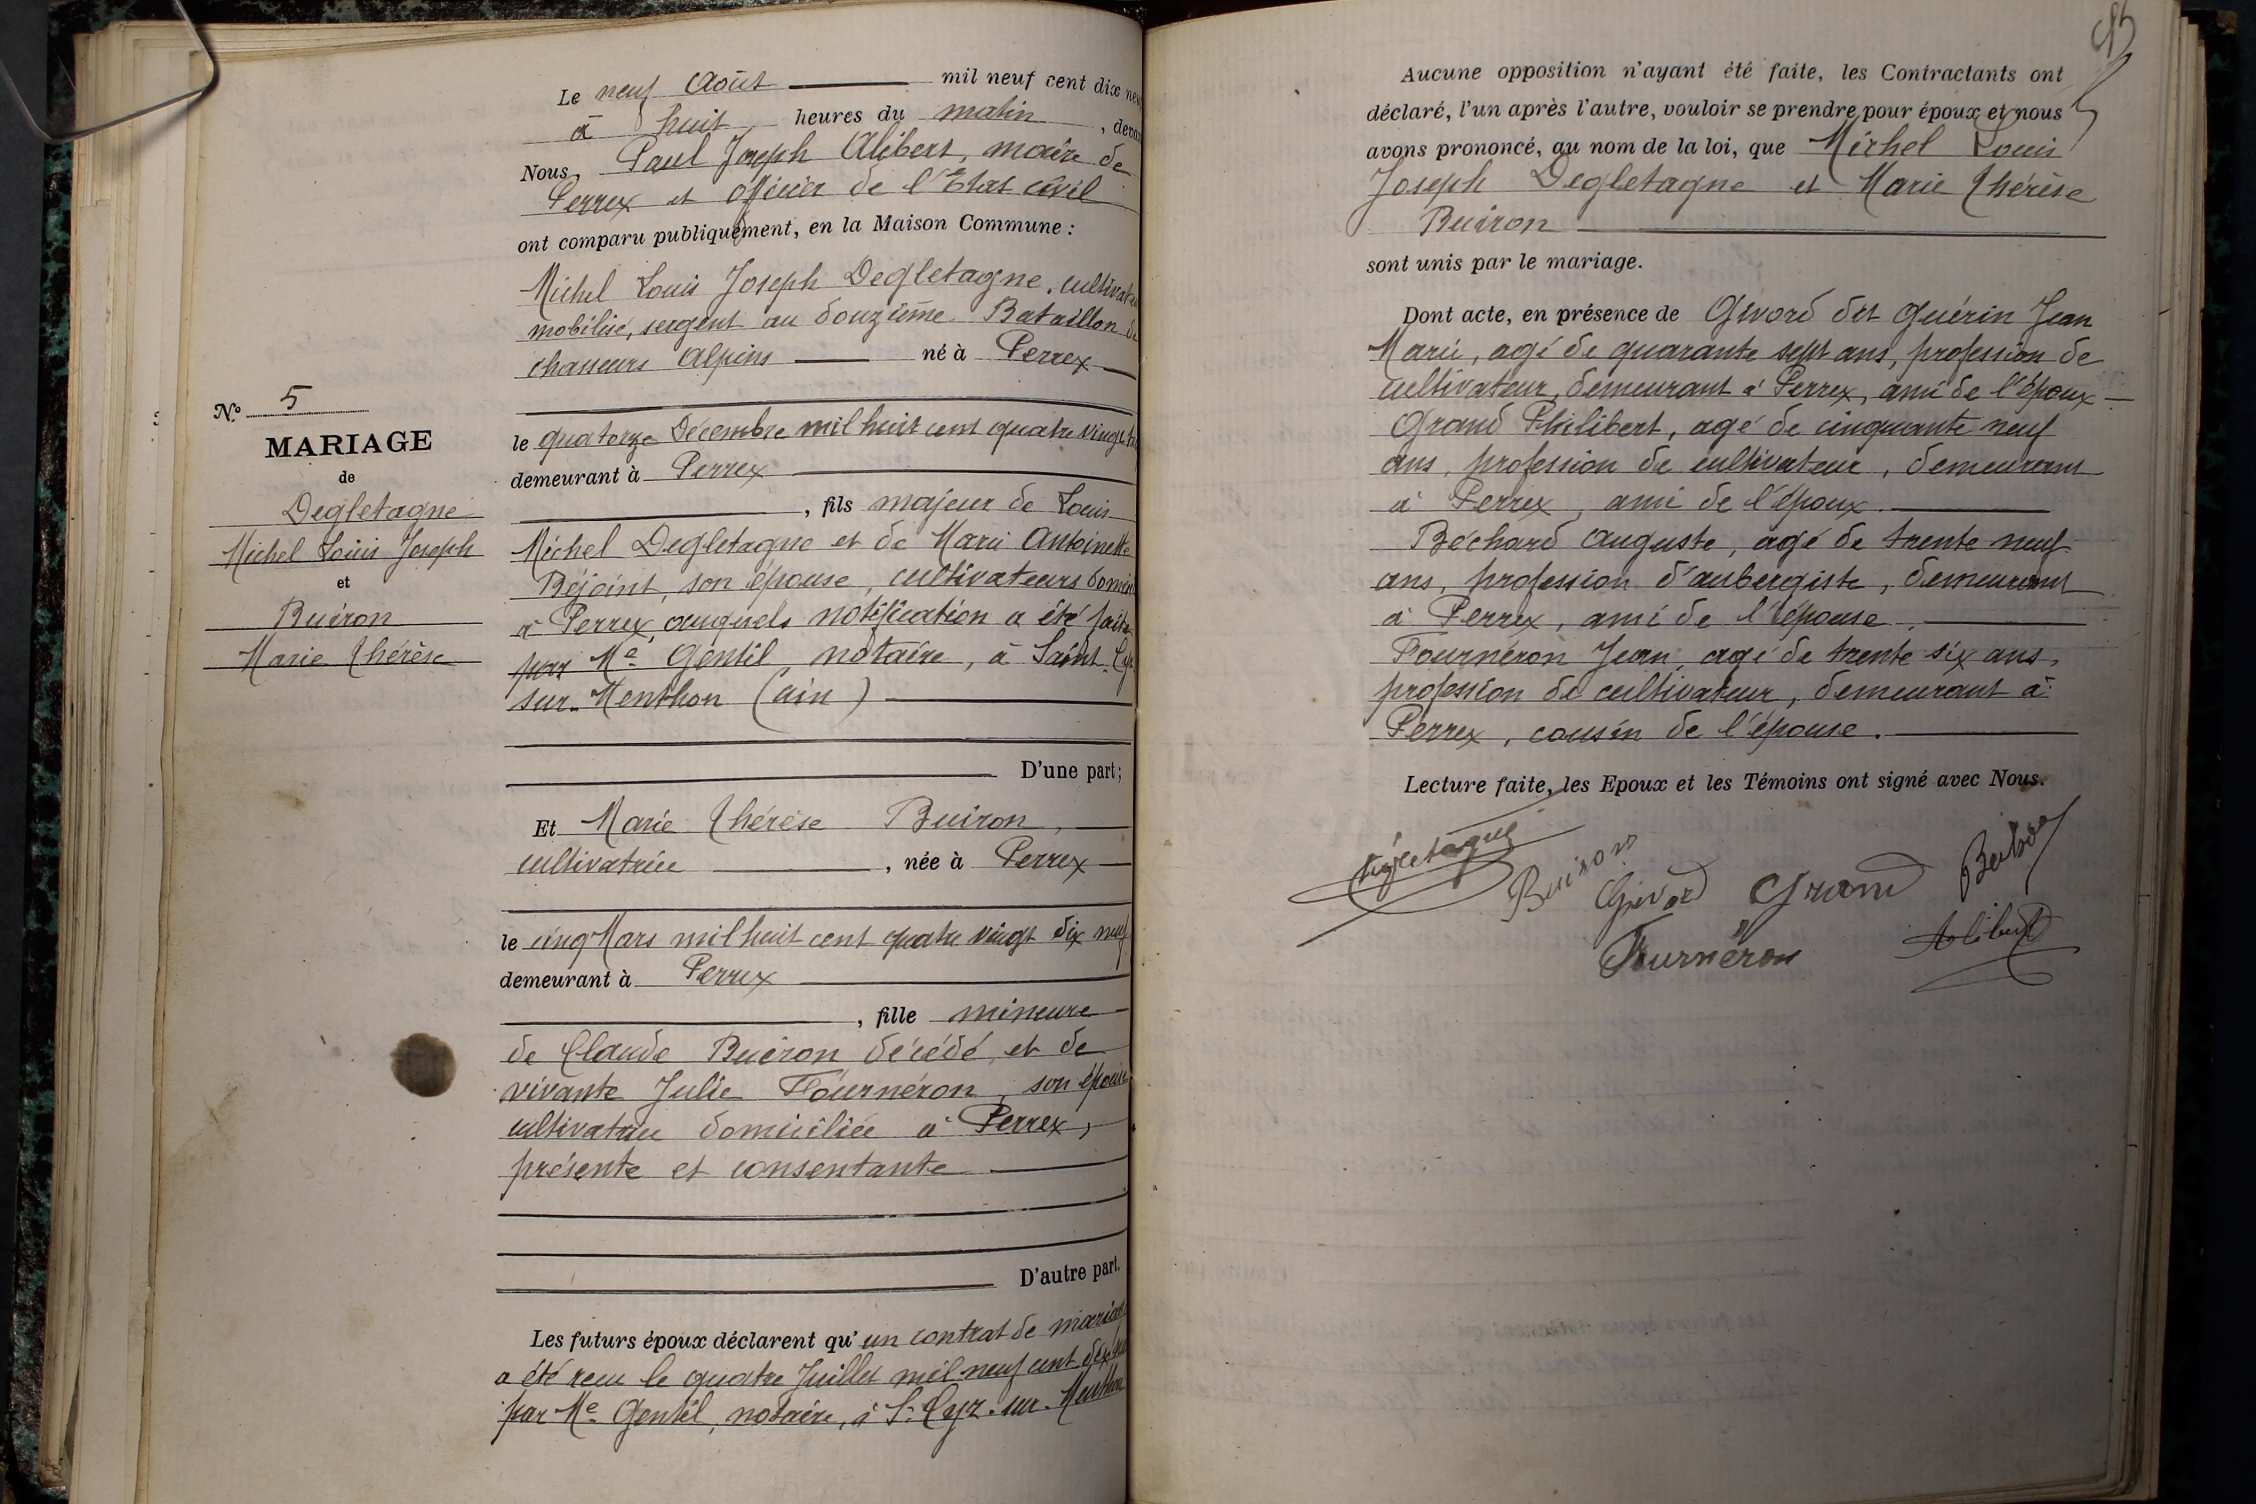 Le neuf Août mil neuf cent dix neu
à huit heures du matin, devan
Nous, Paul Joseph Alibert, maire de
Perrex et officier de l'Etat civil
ont comparu publiquement, en la Maison Commune :
Michel Louis Joseph Degletagne, cultivateu
mobilisé, sergent au douzième Bataillon de
chasseurs Alpins né à Perrex
le quatorze Décembre mil huit cent quatre vingt
demeurant à Perrex
, fils majeur de Louis
Michel Degletagne et de Marie Antoinette
Béjoint, son épouse, cultivateurs domici
à Perrex, auxquels notification a été faite
par Me Gentil, notaire, à Saint-Cyr
sur-Menthon (Ain)
D'une part ;
Et Marie Thérèse Buiron,
cultivatrice, née à Perrex
le cinq Mars mil huit cent quatre vingt dix neuf
demeurant à Perrex
, fille mineure
de Claude Buiron décédé et de
vivante Julie Fournéron, son épouse
cultivatrice domiciliée à Perrex,
présente et consentante
D'autre part.
Les futurs époux déclarent qu'un contrat de mariage
a été reçu le quatre Juillet mil neuf cent dix
par Me Gentil, notaire, à St Cyr-sur-Menthon
No 5
MARIAGE
de
Degletagne
Michel Louis Joseph
et
Buiron
Marie Thérèse
Aucune opposition n'ayant été faite, les Contractants ont
déclaré, l'un après l'autre, vouloir se prendre pour époux et nous
avons prononcé, au nom de la loi, que Michel Louis
Joseph Degletagne et Marie Thérèse
Buiron
sont unis par le mariage.
Dont acte, en présence de Givord dit Guérin Jean
Marie, agé de quarante sept ans, profession de
cultivateur, demeurant à Perrex, ami de l'époux
Grand Philibert, agé de cinquante neuf
ans, profession de cultivateur, demeurant
à Perrex, ami de l'époux.
Béchard Auguste, agé de trente neuf
ans, profession d'aubergiste, demeurant
à Perrex, ami de l'épouse.
Fournéron Jean, agé de trente six ans,
profession de cultivateur, demeurant à
Perrex, cousin de l'épouse.
Lecture faite, les Epoux et les Témoins ont signé avec Nous.
Degletagne
Buiron
Givord
Grand
Fournéron
Alibert